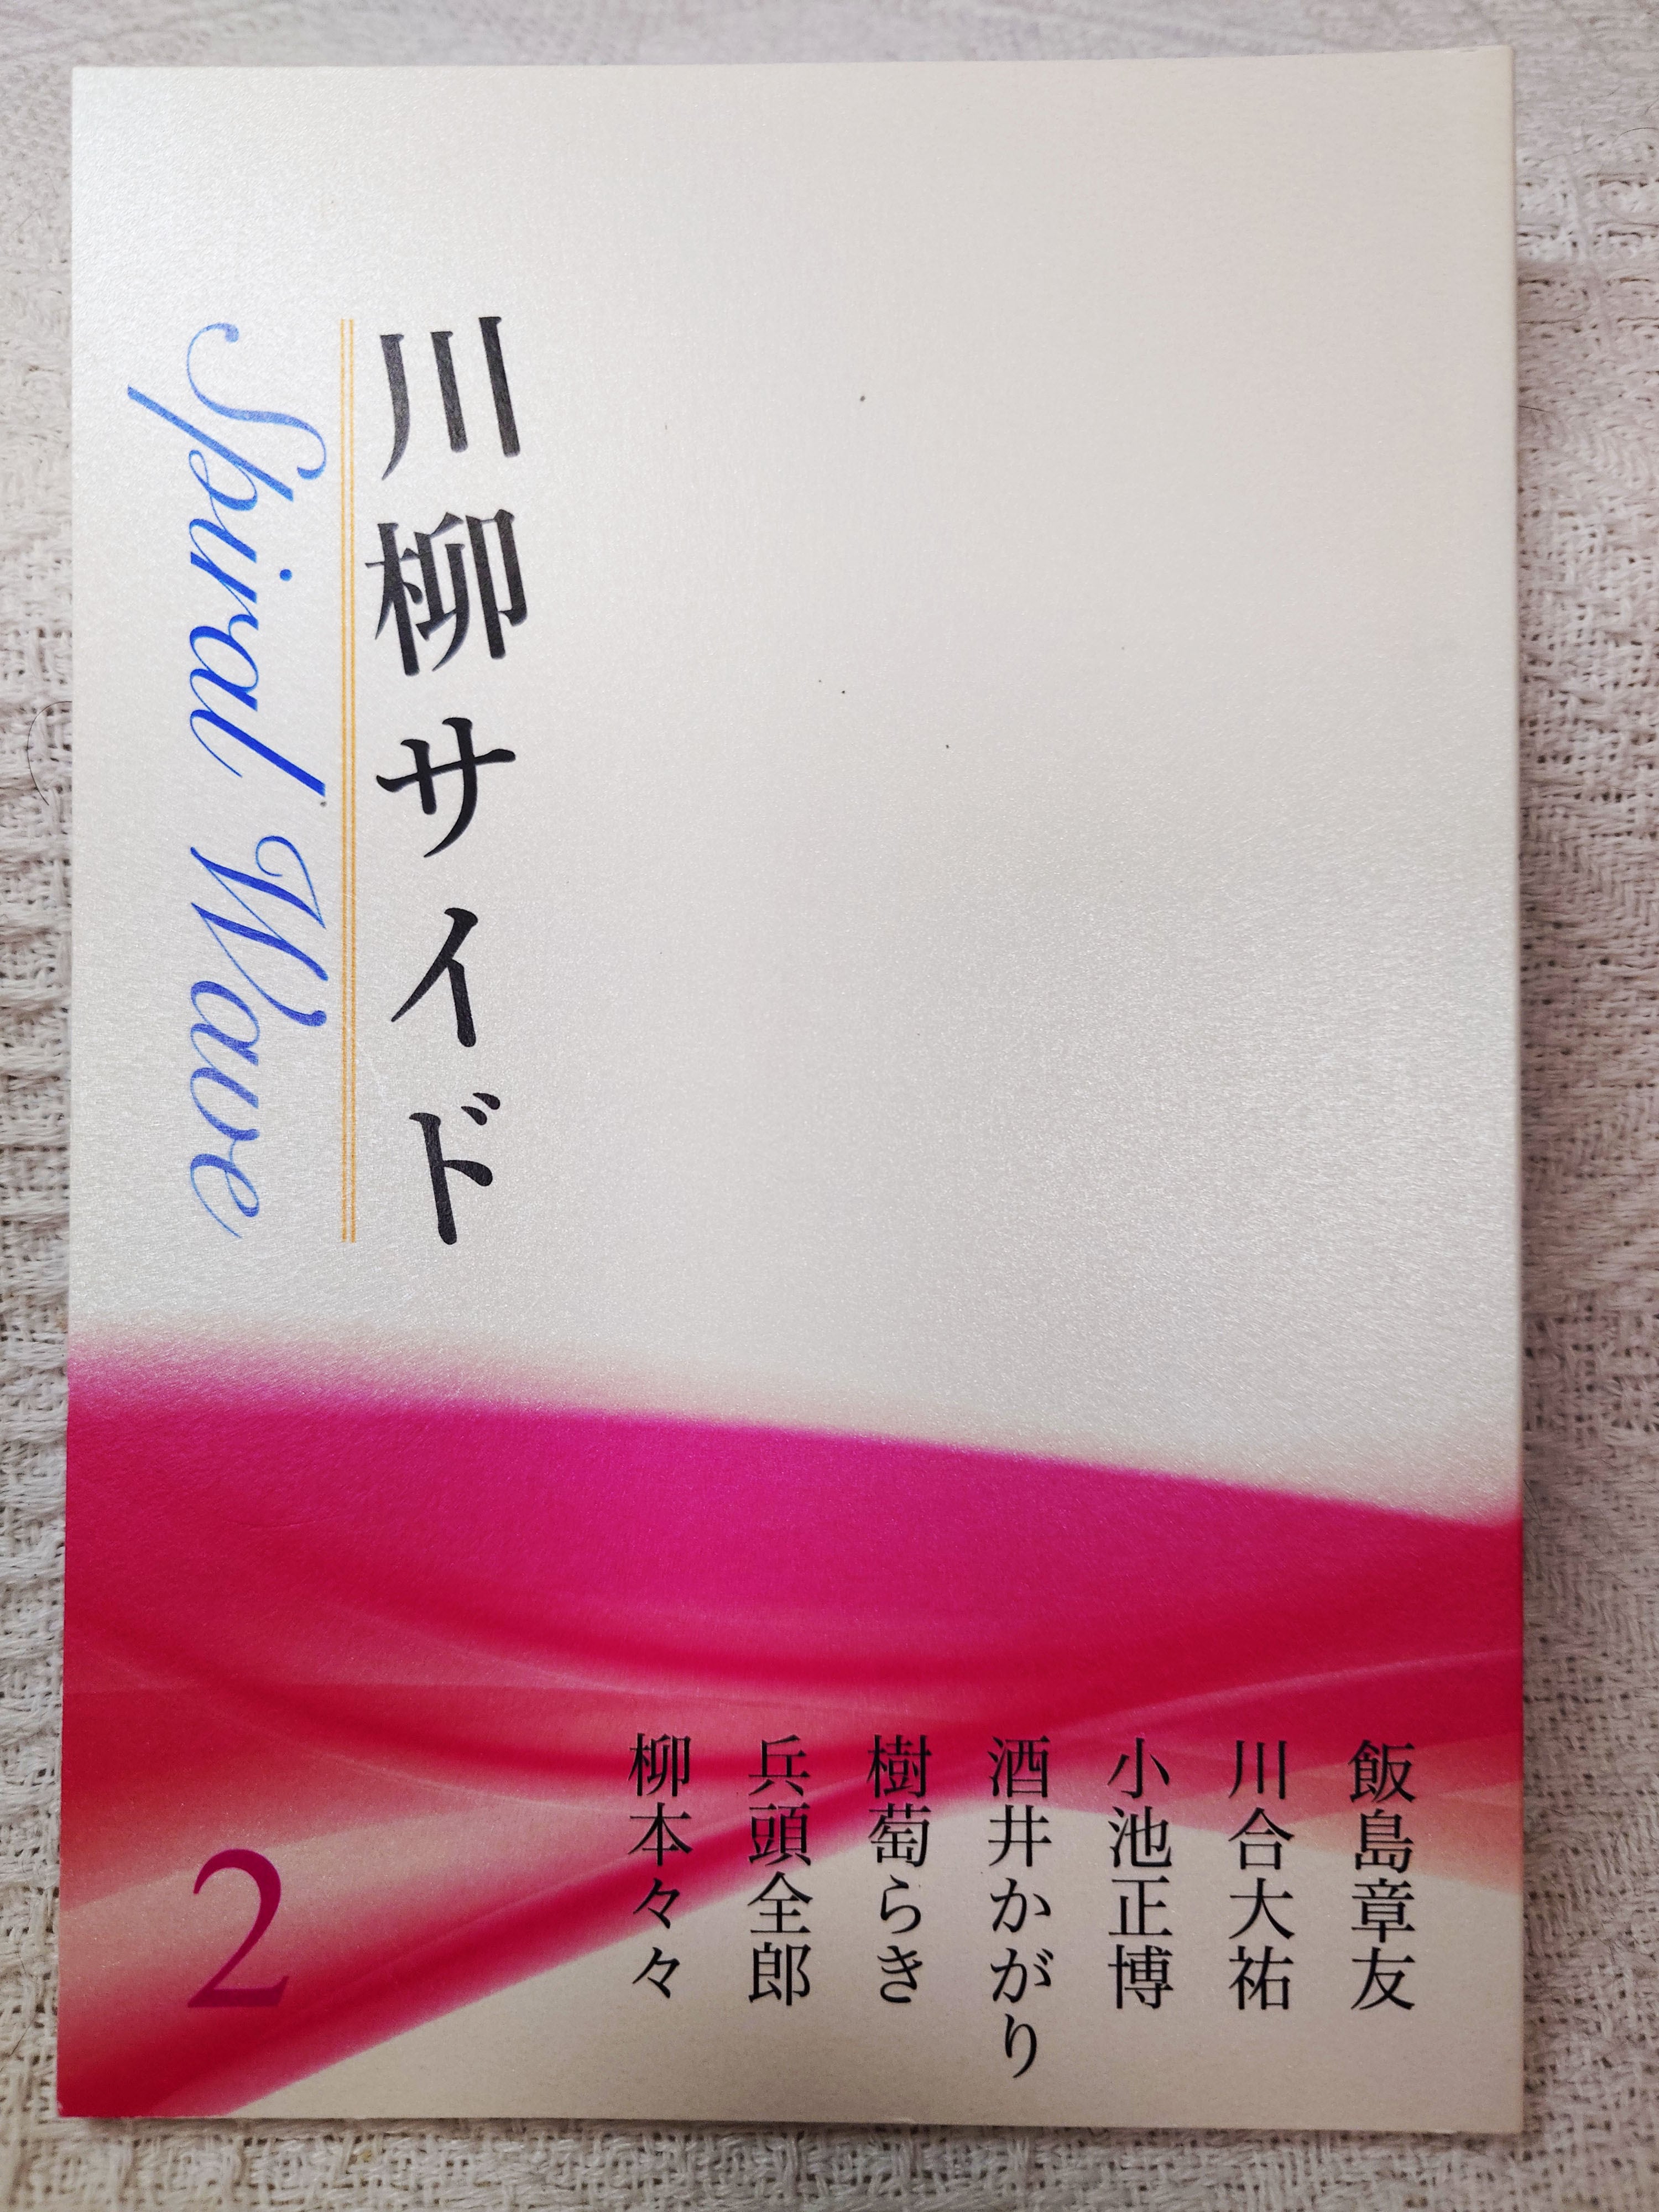 飯島章友
川合大祐
小池正博
酒井かがり
樹萄らき
兵頭全郎
柳本々々
川柳サイド
Spiral Wave
2